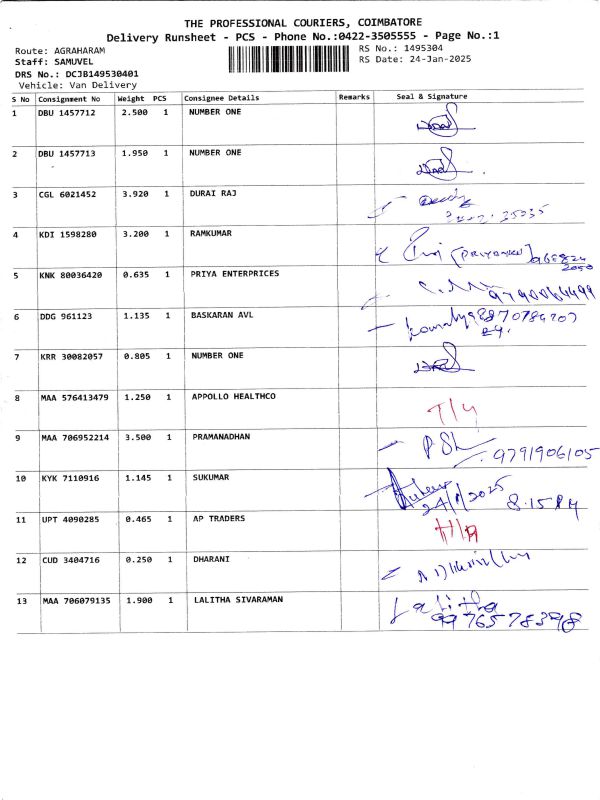 THE PROFESSIONAL COURIERS, COIMBATORE
Delivery Runsheet - PCS - Phone No.:0422-3505555 - Page No.:1
Route: AGRAHARAM RS No.: 1495304
Staff: SAMUVEL RS Date: 24-Jan-2025
DRS No.: DCJB149530401
Vehicle: Van Delivery
S No Consignment No Weight PCS Consignee Details Remarks Seal & Signature
1 DBU 1457712 2.500 1 NUMBER ONE
2 DBU 1457713 1.950 1 NUMBER ONE
3 CGL 6021452 3.920 1 DURAI RAJ
4 KDI 1598280 3.200 1 RAMKUMAR
5 KNK 80036420 0.635 1 PRIYA ENTERPRICES
9790064499
6 DDG 961123 1.135 1 BASKARAN AVL
7 KRR 30082057 0.805 1 NUMBER ONE
8 MAA 576413479 1.250 1 APPOLLO HEALTHCO
9 MAA 706952214 3.500 1 PRAMANADHAN
9791906105
10 KYK 7110916 1.145 1 SUKUMAR
24/1/2025 8.15 PM
11 UPT 4090285 0.465 1 AP TRADERS
12 CUD 3404716 0.250 1 DHARANI
13 MAA 706079135 1.900 1 LALITHA SIVARAMAN
Lalitha
9976578398